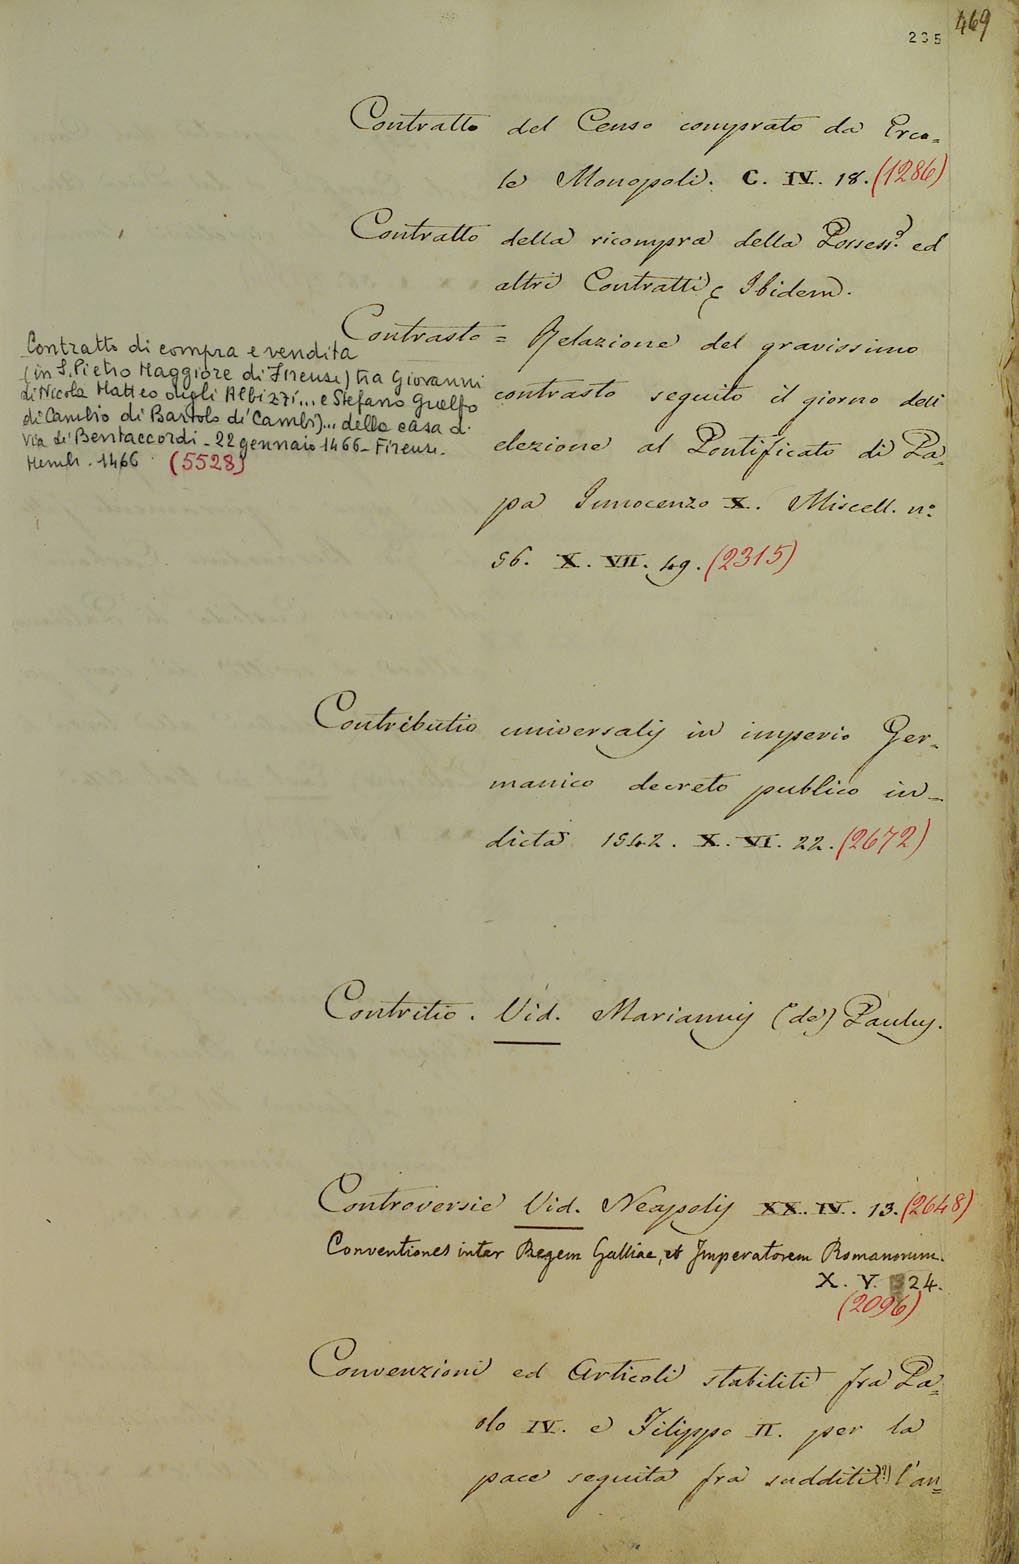 469
235
Contratto del Censo comprato da Erco=
le Monopoli. C. IV. 18. (1286)
Contratto della ricompra della Possess.e ed
altri Contratti, Ibidem.
Contrasto = Relazione del gravissimo
contrasto seguito il giorno dell
elezione al Pontificato di Pa=
pa Innocenzo X. Miscell. n.o
56. X. VII. 49. (2315)
Contratto di compra e vendita
(in S. Pietro Maggiore di Firenze) tra Giovanni
di Nicola Matteo degli Albizzi... e Stefano Guelfo
di Cambio di Bartolo de' Cambi)... della casa d.
via de' Bentaccordi - 22 gennaio 1466 - Firenze.
Membr. 1466 (5528)
Contributio universalis in imperio Ger=
manico decreto publico in=
dicta 1542. X. VI. 22. (2672)
Contritio. Vid. Mariannis (de) Paulus.
Controversie Vid. Neapolis XX. IV. 13. (2648)
Conventiones inter Regem Galliae, et Imperatorem Romanorum.
X. V. 24.
(2096)
Convenzioni ed Articoli stabiliti fra Pa=
olo IV. e Filippo II. per la
pace seguita fra sudditi (?) l'an=